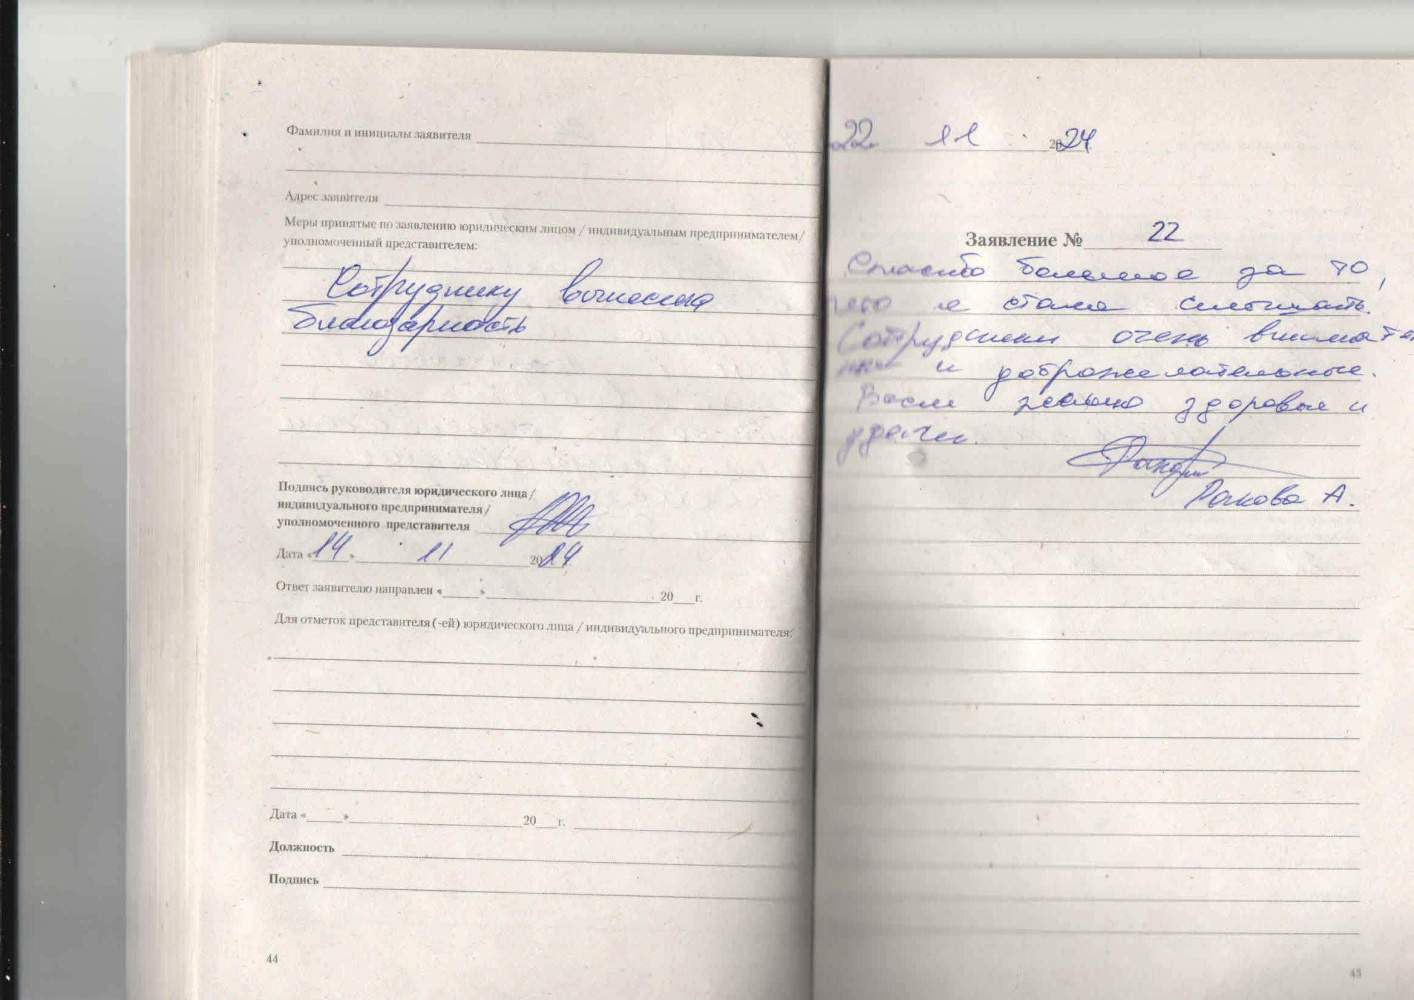 Фамилия и инициалы заявителя
Адрес заявителя
Меры принятые по заявлению юридическим лицом / индивидуальным предпринимателем/
уполномоченный представителем:
Сотруднику вынесена
благодарность
Подпись руководителя юридического лица/
индивидуального предпринимателя/
уполномоченного представителя
Дата «14» 11 2024
Ответ заявителю направлен «___»___20__г.
Для отметок представителя (-ей) юридического лица / индивидуального предпринимателя:
Дата «___»___20__г.
Должность
Подпись
44
22 11 2024
Заявление № 22
Спасибо большое за то,
что я стала слышать.
Сотрудники очень внимате
и доброжелательные.
Всем желаю здоровья и
удачи.
Ракова А.
45